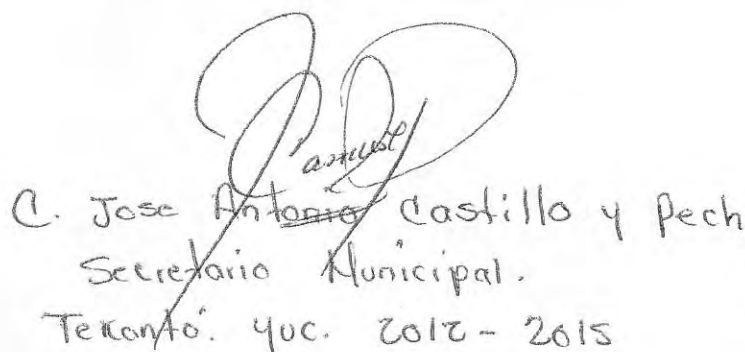 C. Jose Antonio Castillo y Pech
Secretario Municipal.
Tekantó. Yuc. 2012 - 2015